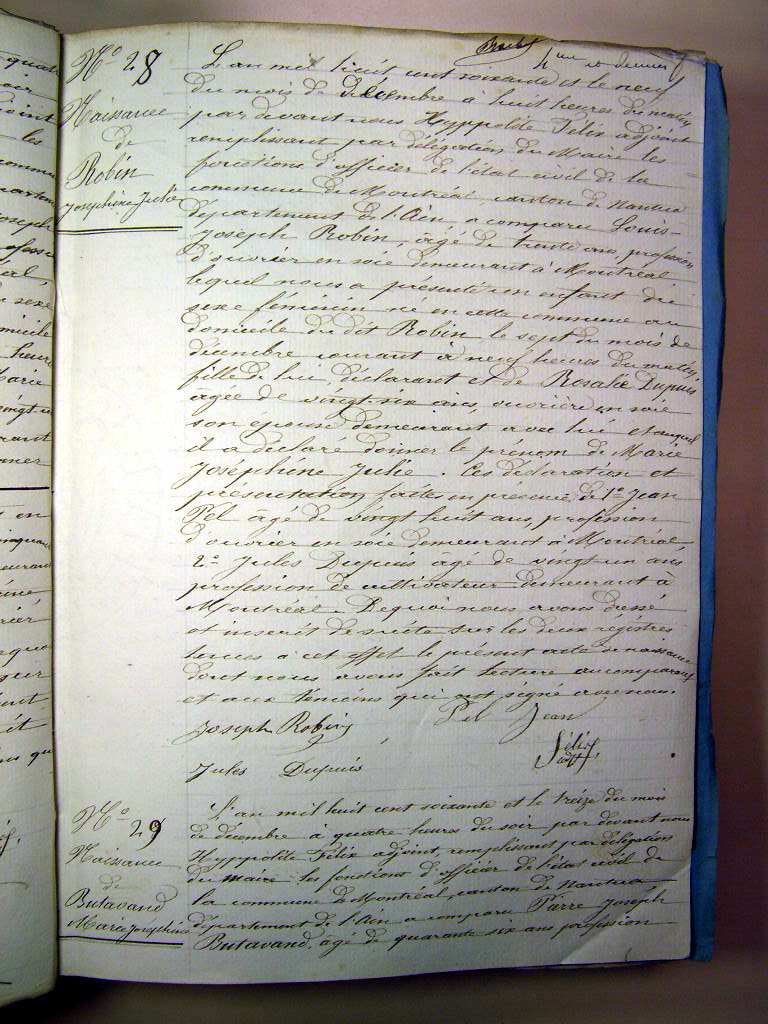 4me et dernier f
No 28
Naissance
de
Robin
Joséphine Julie
L'an mil huit cent soixante et le neuf
du mois de décembre à huit heures du matin
par devant nous Hyppolite Félix adjoint
remplissant par délégation du Maire les
fonctions d'officier de l'état civil de la
commune de Montréal, canton de Nantua
département de l'Ain a comparu Louis-
Joseph Robin, âgé de trente ans, profession
d'ouvrier en soie demeurant à Montréal
lequel nous a présenté un enfant du
sexe féminin né en cette commune au
domicile du dit Robin le sept du mois de
décembre courant à neuf heures du matin,
fille de lui déclarant et de Rosalie Dupuis
agée de vingt six ans, ouvrière en soie
son épouse demeurant avec lui et auquel
il a déclaré donner le prénom de Marie
Joséphine Julie. Ces déclaration et
présentation faites en présence de 1o Jean
Pel âgé de vingt huit ans, profession
d'ouvrier en soie demeurant à Montréal
2o Jules Dupuis âgé de vingt un ans
profession de cultivateur demeurant à
Montréal. De quoi nous avons dressé
et inscrit de suite sur les deux régistres
tenus à cet effet le présent acte de naissance
dont nous avons fait lecture au comparant
et aux témoins qui ont signé avec nous.
Joseph Robin Pel Jean
Jules Dupuis Félix
adjt
No 29
Naissance
de
Butavand
Marie Joséphine
L'an mil huit cent soixante et le treize du mois
de décembre à quatre heures du soir par devant nous
Hyppolite Félix adjoint, remplissant par délégation
du maire les fonctions d'officier de l'état civil de
la commune de Montréal, canton de Nantua
département de l'Ain a comparu Pierre Joseph
Butavand, age de quarante six ans profession